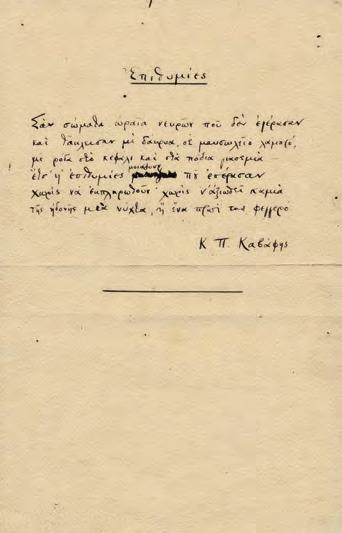 Επιθυμίες
Σαν σώματα ωραία νεκρών που δεν εγέρασαν
και τάκλεισαν, με δάκρυα, σε μαυσωλείο λαμπρό,
με ρόδα στο κεφάλι και στα πόδια γιασεμιά —
έτσι η επιθυμίες μοιάζουν που επέρασαν
χωρίς να εκπληρωθούν· χωρίς ν' αξιωθεί καμιά
της ηδονής μια νύχτα, ή ένα πρωΐ της φεγγερό.
Κ. Π. Καβάφης